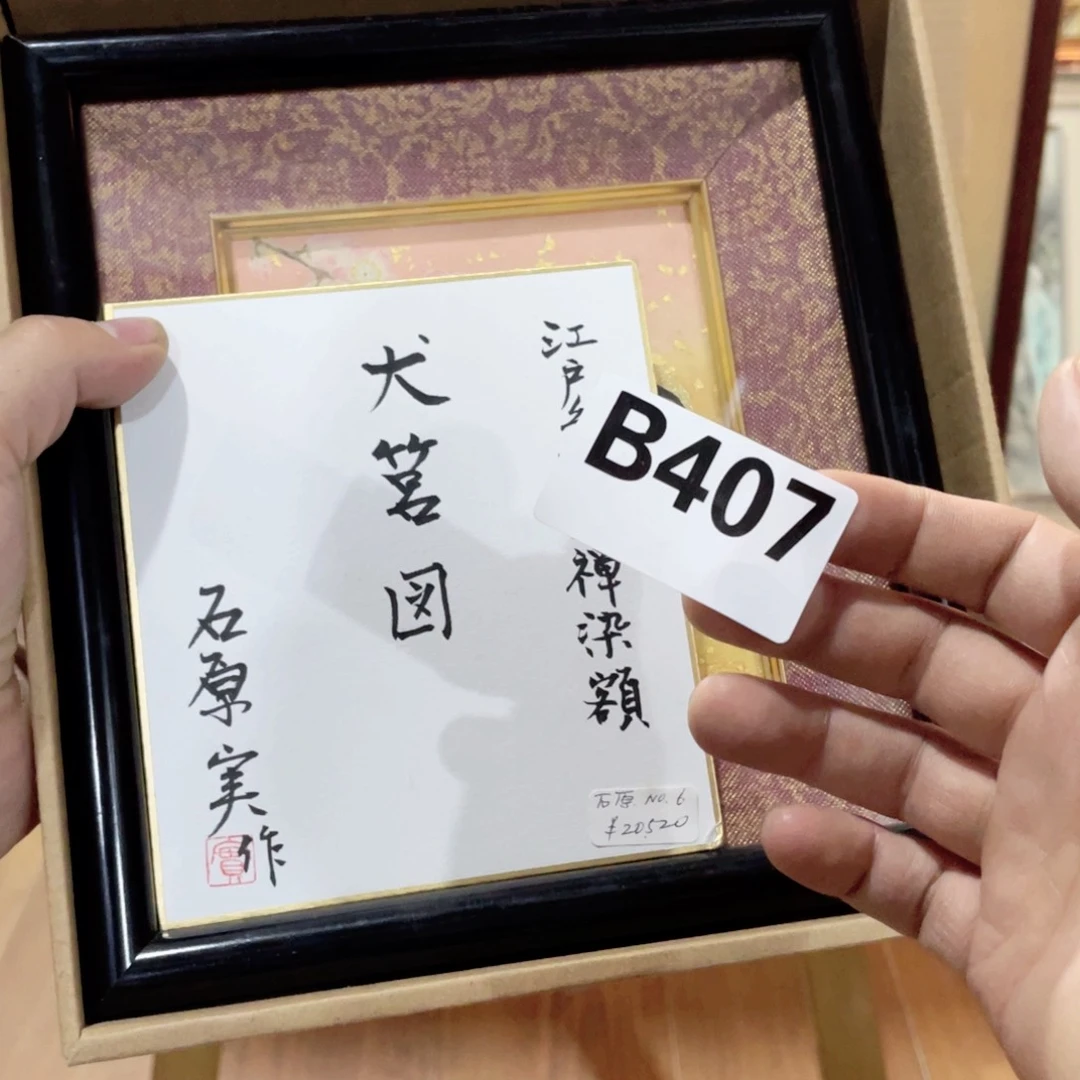 江戸
禅染額
犬筥図
石原実作
實
石原 NO.6
¥20,520
B407